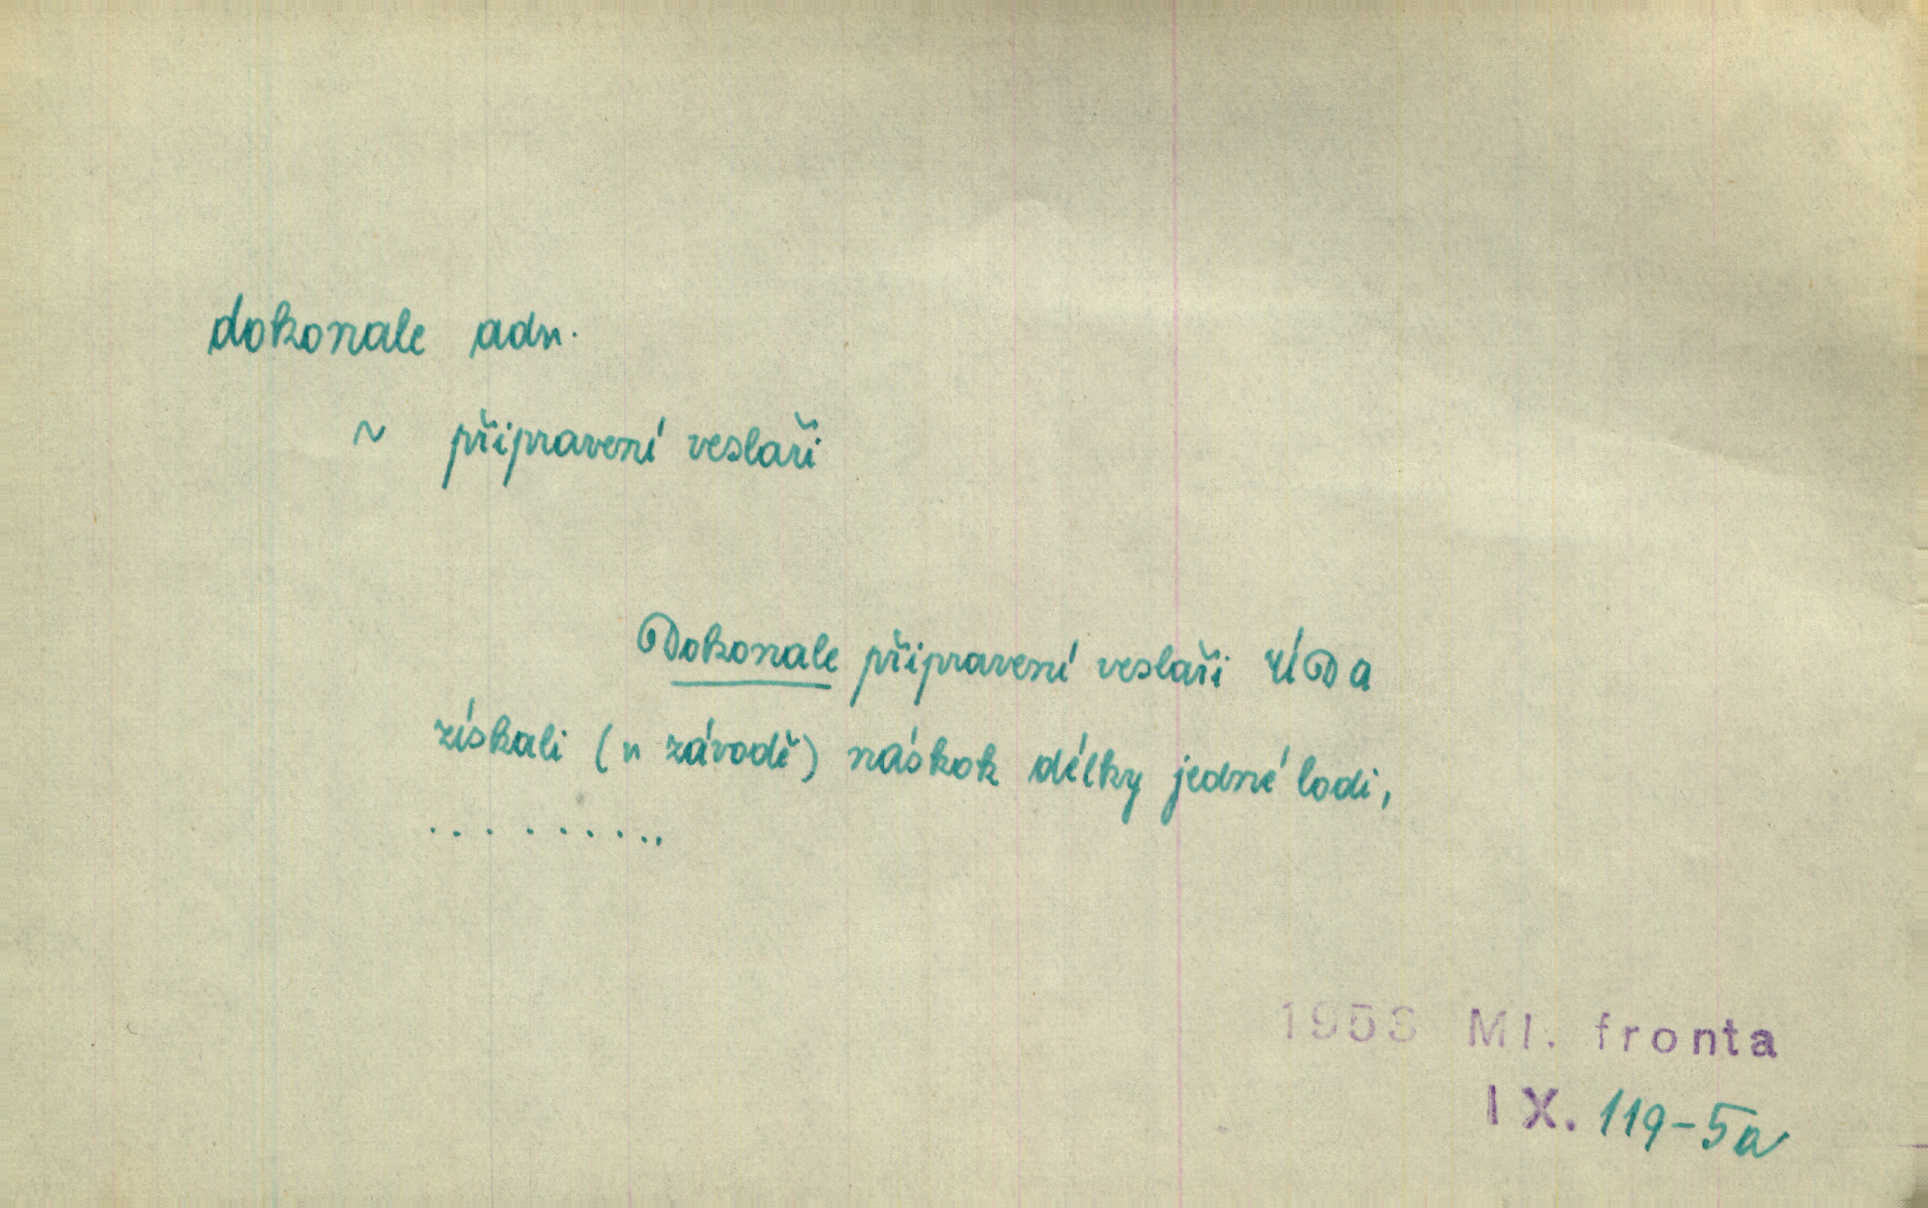 dokonale adv.
~ připravení veslaři
Dokonale připravení veslaři ÚDA
získali (v závodě) náskok délky jedné lodi,
. . . . . . . . . .
1953 Ml. fronta
IX. 119-5a